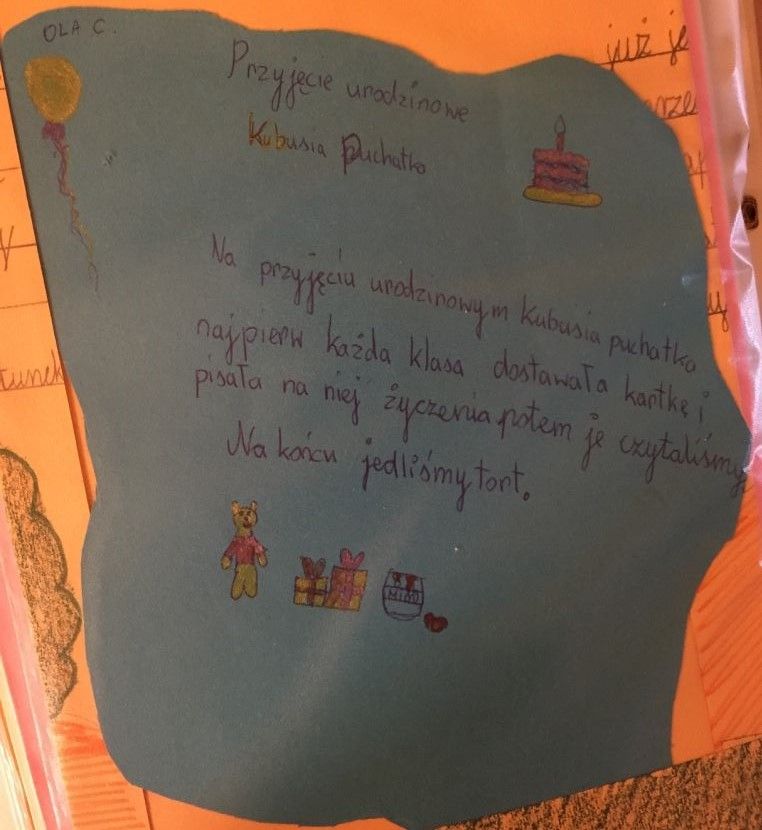 OLA C.
Przyjęcie urodzinowe
Kubusia Puchatka
Na przyjęciu urodzinowym Kubusia puchatka
najpierw każda klasa dostawała kartkę i
pisała na niej życzenia potem je czytaliśmy
Na końcu jedliśmy tort.
MIÓD
już je